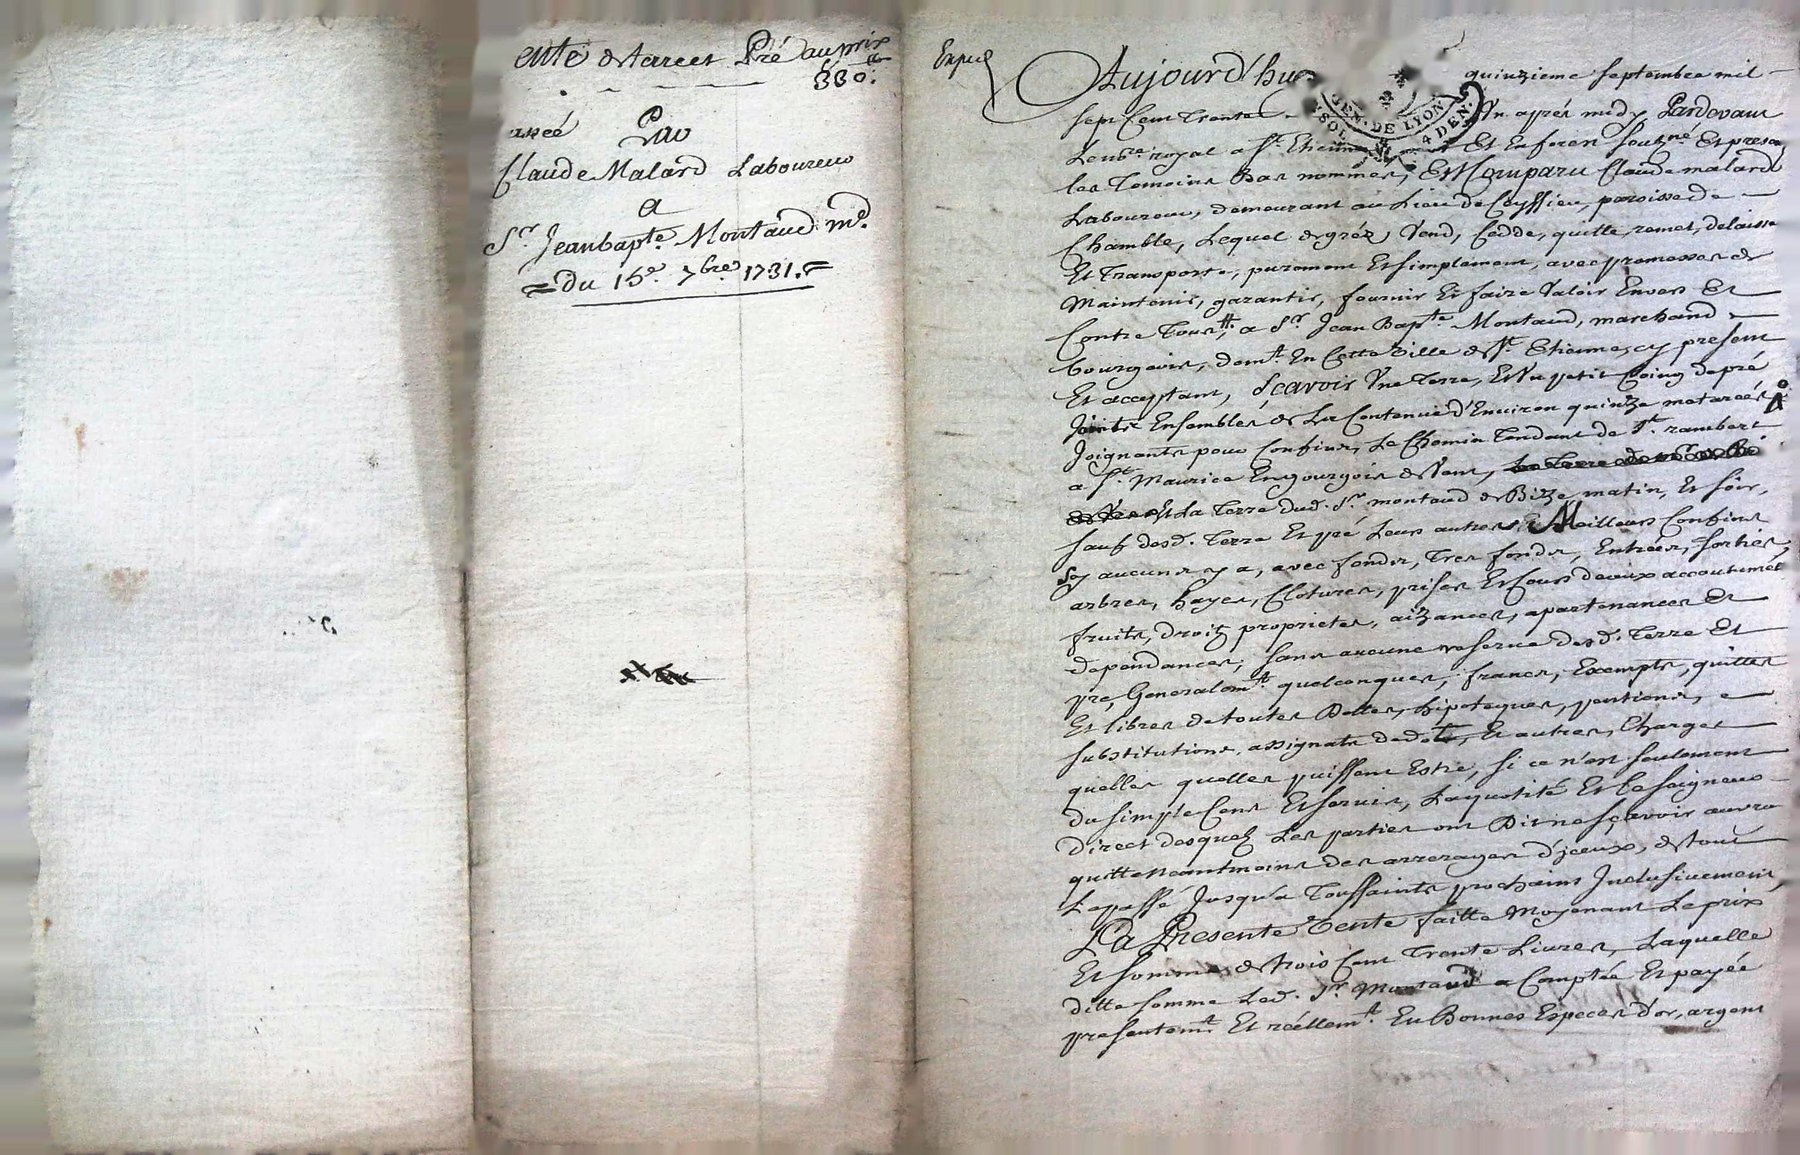 ente de terres Pré au prix
330.tt
passé Par
Claude Malard Laboureur
a
Sr. Jean bapte. Montaud md.
= du 15e. 7bre 1731. =
Exped
Aujourd'huy quinzieme septembre mil
sept Cent Trente Un aprés midy Pardevant
Le nore. royal a St. Etienne Et En forest souzné. Et presents
les Temoins Bas nommes, Est Comparu Claude malard
Laboureur, demeurant au Lieu de Ceyssieu, paroisse de
Chamble, Lequel de gréz, Vend, Cedde, quitte, remet, delaisse
Et Transporte, purement Et simplement, avec promesses de
Maintenir, garantir, fournir Et faire Valoir Envers Et
Contre Toustt, a Sr. Jean Bapte. Montaud, marchand
bourgeois, demt. En Cette Ville de St. Etienne, cy present
Et acceptant, Sçavoir Une Terre, Et Un petit Coing de pré
Joints Ensembles de La Contenue d'Environ quinze meterées
Joignants pour Confins, Le Chemin Tendant de St. rambert
a St. Maurice En gourgois de Vent,
Et La Terre dud. Sr. montaud de Bize matin, Et soir,
sauf desd. Terre Et pré Leurs autres Et Meilleurs Confins
Sy aucuns y a, avec fonds, Tres fonds, Entrées, sorties,
arbres, hayes, Clotures, prises Et Cours d'eaux accoutumés
fruits, droitz proprietes, aizances, apartenances Et
dependances, sans aucune reserve desd. Terre Et
pré, Generalemt. quelconques, francs, Exempts, quittes
Et libres de toutes Dettes, hipoteques, pentions,
substitutions, assignats de dot, Et autres, Charges
quelles quelles puissent Estre, si ce n'est seulement
du simple Cens Et servis, La quotité Et le seigneur
direct desquelz Les parties ont Dit ne sçavoir
quitte neantmoins des arrerages d'jceux, de tout
Le passé Jusqu'a Toussaints prochains Inclusivement,
La Presente Vente faitte Moyenant Le prix
Et somme de trois Cent Trente Livres, Laquelle
ditte somme Led. Sr. Montaud a Comptée Et payée
presentemt. Et réellemt. En Bonnes Especes d'or, argent
GEN. DE LYON
SOL. 4 DEN.